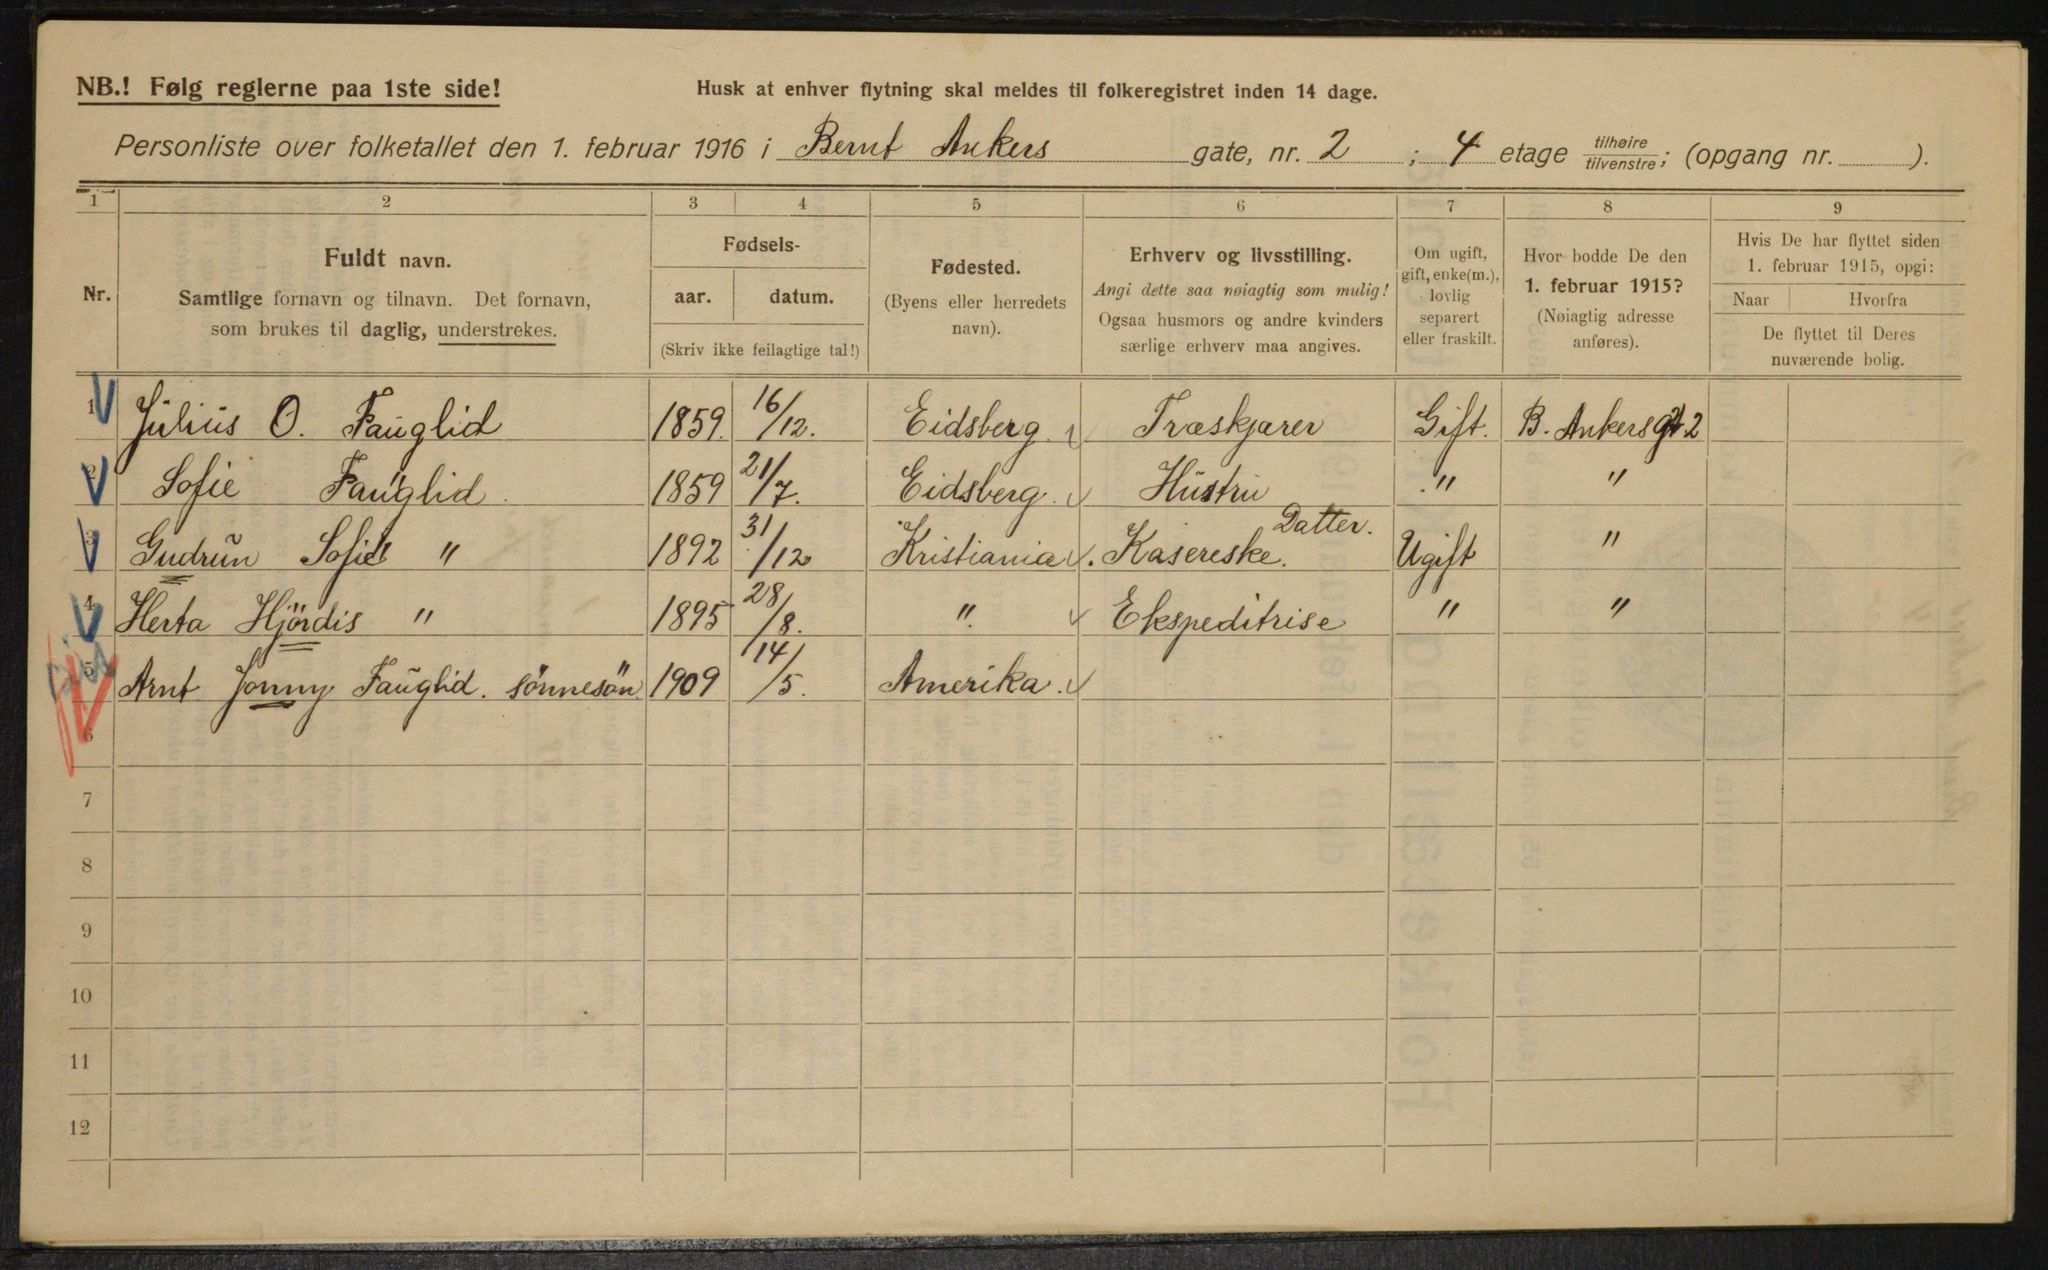 NB.! Følg reglerne paa 1ste side!
Husk at enhver flytning skal meldes til folkeregistret inden 14 dage.
Personliste over folketallet den 1. februar 1916 i Bernt Ankers gate, nr. 2 ; 4 etage tilhøire tilvenstre; (opgang nr. ).
1 2 3 4 5 6 7 8 9
Nr.
Fuldt navn.
Samtlige fornavn og tilnavn. Det fornavn,
som brukes til daglig, understrekes.
Fødsels-
aar. datum.
(Skriv ikke feilagtige tal!)
Fødested.
(Byens eller herredets
navn).
Erhverv og livsstilling.
Angi dette saa nøiagtig som mulig!
Ogsaa husmors og andre kvinders
særlige erhverv maa angives.
Om ugift,
gift, enke(m.),
lovlig
separert
eller fraskilt.
Hvor bodde De den
1. februar 1915?
(Nøiagtig adresse
anføres).
Hvis De har flyttet siden
1. februar 1915, opgi:
Naar Hvorfra
De flyttet til Deres
nuværende bolig.
1 Julius O. Fauglid 1859. 16/12. Eidsberg Træskjærer Gift. B. Ankersgt 2
2 Sofie Fauglid. 1859 21/7. Eidsberg. Hustru " "
3 Gudrun Sofie " 1892 31/12 Kristiania Datter. Kasereske. Ugift "
4 Herta Hjördis " 1895 28/8. " Ekspeditrise " "
5 Arnt Jonny Fauglid. sönnesön. 1909 14/5. Amerika.
6
7
8
9
10
11
12